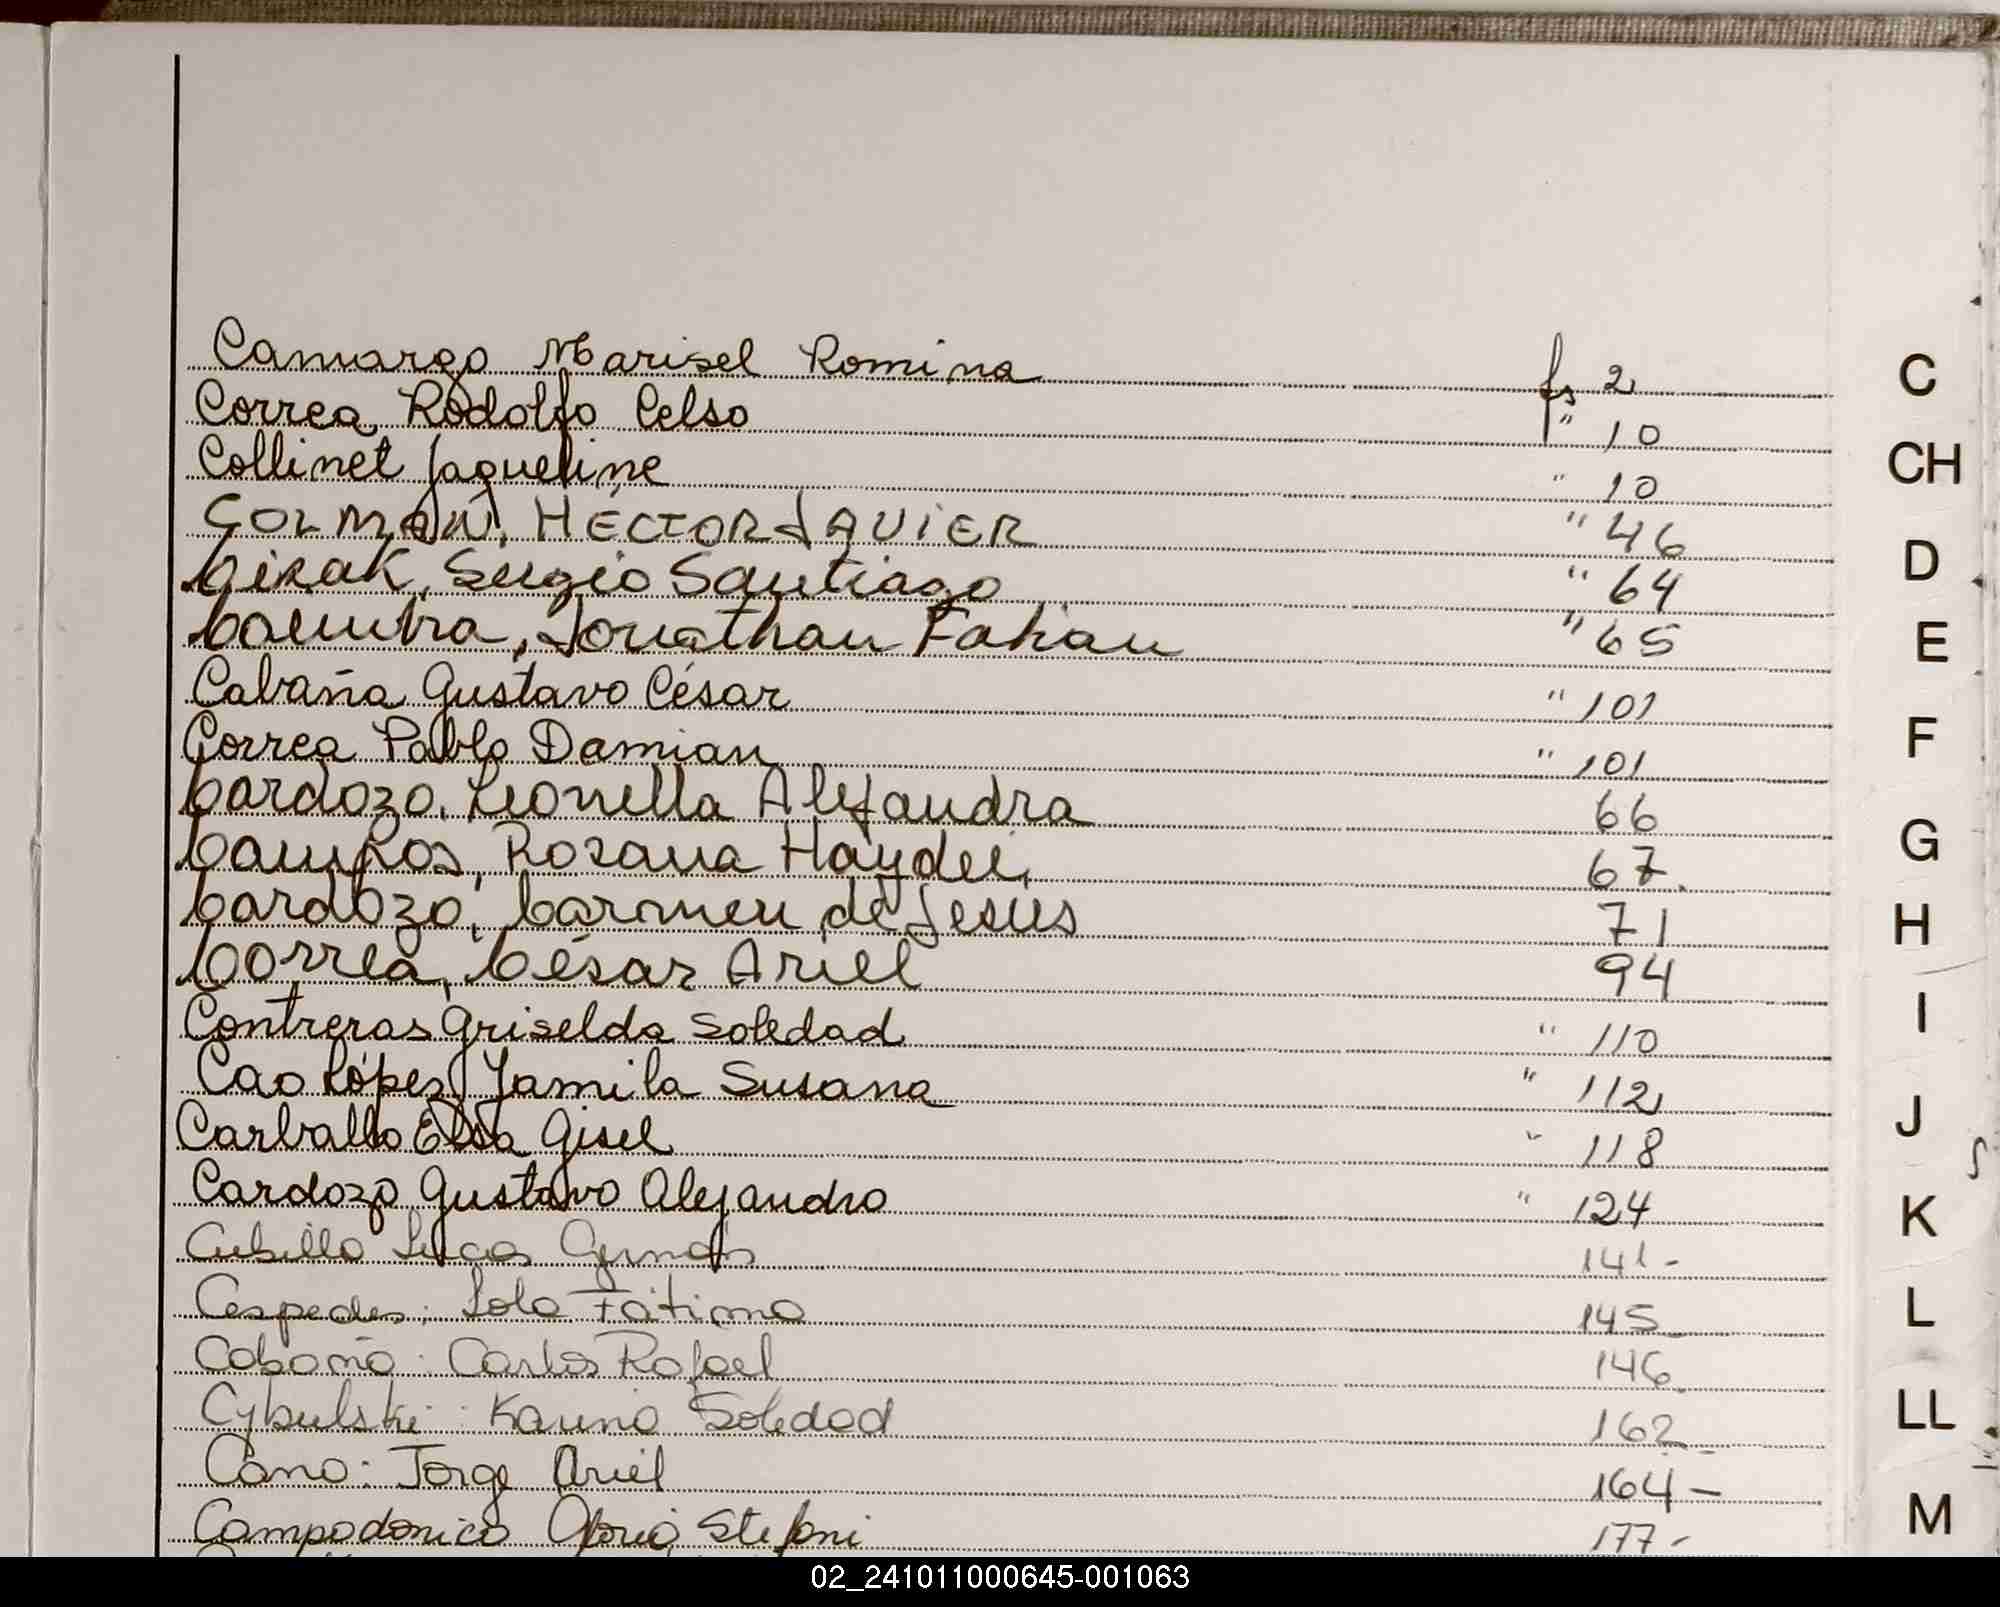 Camargo Marisel Romina fs 2
Correa Rodolfo Celso " 10
Collinet Jaqueline " 10
COLMAN, HECTOR JAVIER " 46
Cirak, Sergio Santiago " 64
Coimbra, Jonathan Fabian " 65
Cabaña Gustavo César " 101
Correa Pablo Damian " 101
Cardozo, Leonella Alejandra 66
Campos, Rosana Haydeé, 67.
Cardozo, Carmen de Jesus 71
Correa, César Ariel 94
Contreras Griselda Soledad " 110
Cao López Yamila Susana " 112
Carballo Elsa Gisel " 118
Cardozo Gustavo Alejandro " 124
Cubilla Lucas 141-
Cespedes: Lola Fátima 145
Cabaña: Carlos Rafael 146
Cybulski: Karina Soledad 162
Cano: Jorge Ariel 164-
Campodonico Stefani 177-
C
CH
D
E
F
G
H
I
J
K
L
LL
M
02_241011000645-001063